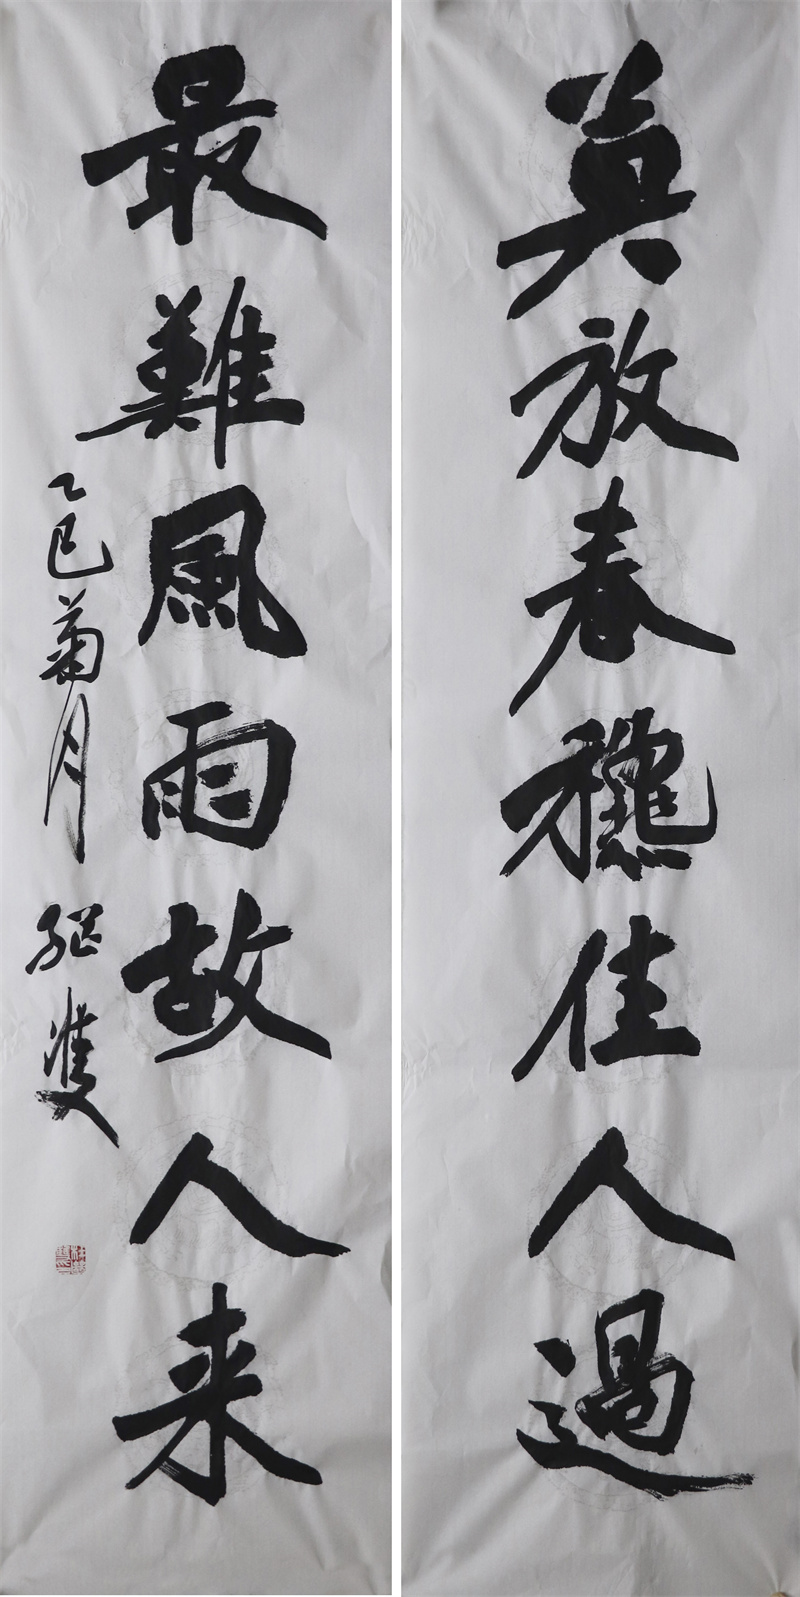 莫放春穐佳人過
最難風雨故人来
乙巳菊月